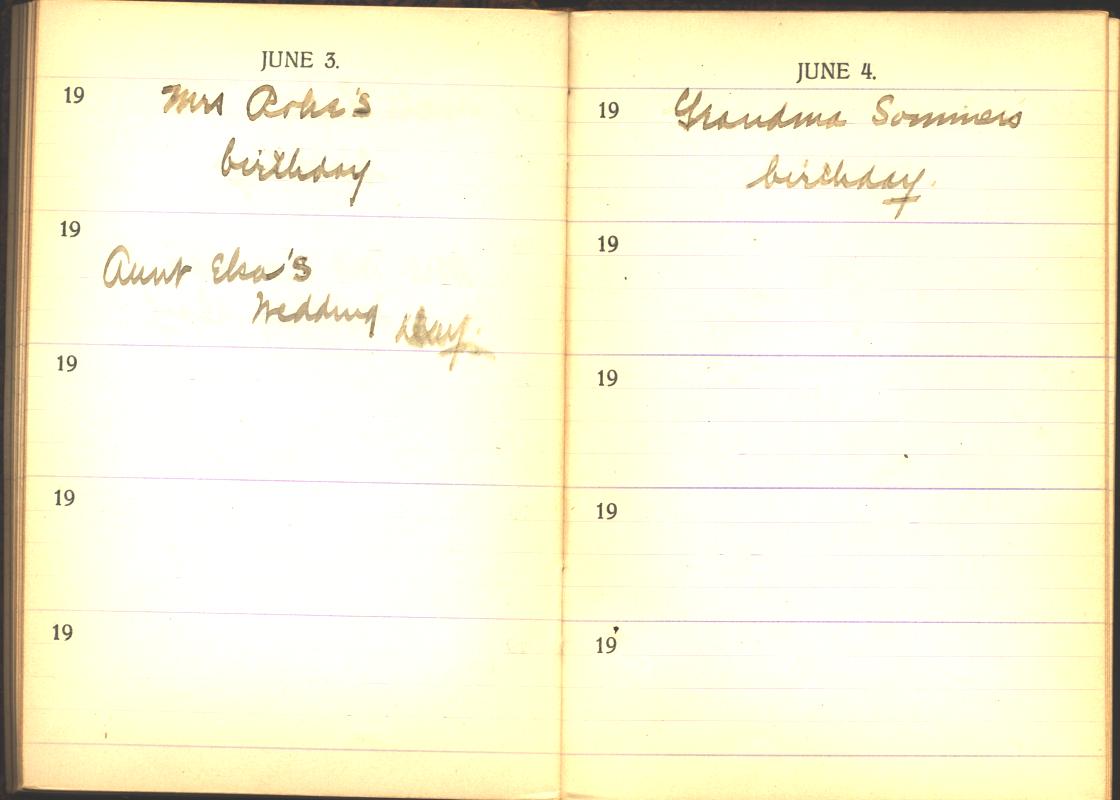 JUNE 3.
19 Mrs Rohe's
birthday
19
Aunt Elsa's
Wedding Day.
19
19
19
JUNE 4.
19 Grandma Sommers
birthday.
19
19
19
19